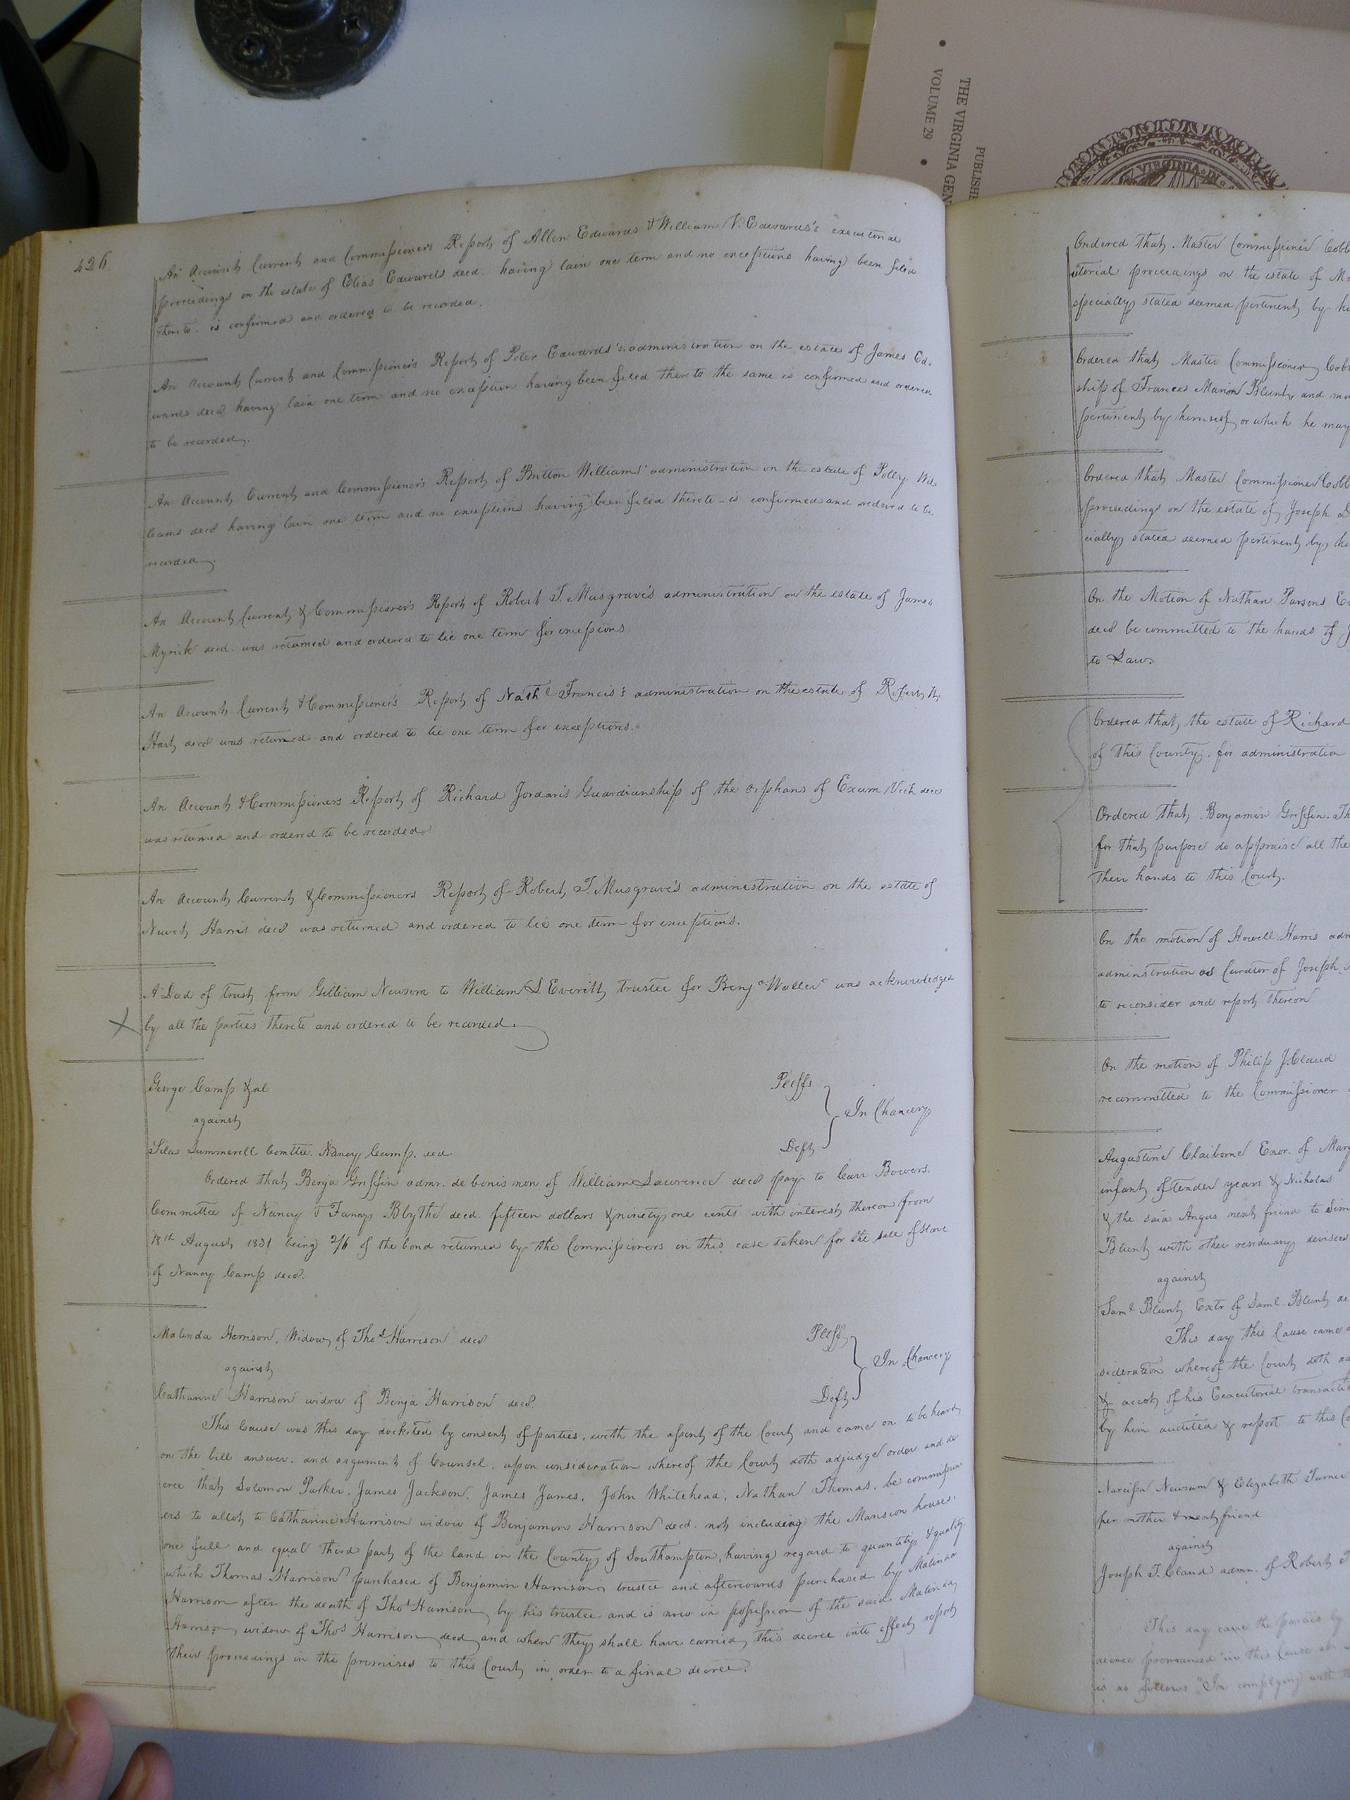 THE VIRGINIA GEN
VOLUME 29
PUBLISHE
VIRGINIA
426
An Account Current and Commissioner's Report of Allen Edwards & William V. Edwards's executorial
proceedings on the estate of Elias Edwards decd. having lain one term and no exceptions having been filed
thereto. is confirmed and ordered to be recorded.
An Account Current and Commissioner's Report of Peter Edwards's administration on the estate of James Ed-
wards decd having lain one term and no exception having been filed thereto the same is confirmed and ordered
to be recorded.
An Account Current and Commissioner's Report of Britton Williams' administration on the estate of Polly Wil
liams decd having lain one term and no exceptions having been filed thereto - is confirmed and ordered to be
recorded.
An Account Current & Commissioner's Report of Robert T. Musgrave's administration on the estate of James
Myrick decd. was returned and ordered to lie one term for exceptions
An Account Current & Commissioner's Report of Nathl Francis's administration on the estate of
Hart decd was returned and ordered to lie one term for exceptions.
An Account & Commissioners Report of Richard Jordan's Guardianship of the orphans of Exum Vick decd
was returned and ordered to be recorded
An Account Current & Commissioners Report of Robert T. Musgrave's administration on the estate of
Newit Harris decd was returned and ordered to lie one term for exceptions.
A Deed of trust from Gilliam Newsom to William D Everitt trustee for Benja Waller was acknowledged
by all the parties thereto and ordered to be recorded.
George Camp & al Pleffs
against In Chancery
Silas Summerell Comttee. Nancy Camp. decd Deft
Ordered that Benja Griffin admr. de bonis non of William Lawrence decd pay to Carr Bowers.
Committee of Nancy & Fanny Blythe decd. fifteen dollars & ninety one cents with interest thereon from
18th August 1831 being 2/6 of the bond returned by the Commissioners in this case taken for the sale of slave
of Nancy Camp decd.
Malinda Harrison, Widow of Thos Harrison decd Pleff
against In Chancery
Catharine Harrison widow of Benja Harrison decd. Deft
This Cause was this day docketed by consent of parties, with the assent of the Court and came on to be heard
on the bill answer. and argument of Counsel. upon consideration whereof the Court doth adjudge order and de
cree that Solomon Parker, James Jackson, James James, John Whitehead, Nathan Thomas, be commission
ers to allot to Catharine Harrison widow of Benjamin Harrison decd. not including the Mansion house.
one full and equal third part of the land in the County of Southampton, having regard to quantity & quality
which Thomas Harrison purchased of Benjamin Harrison trustee and afterwards purchased by Malinda
Harrison after the death of Thos Harrison by his trustee and is now in possession of the said Malinda
Harrison widow of Thos Harrison decd and when they shall have carried this decree into effect report
their proceedings in the premises to this Court in order to a final decree.
Ordered that Master Commissioner Cobb
utorial proceedings on the estate of M
specially stated deemed pertinent by h
Ordered that Master Commissioner Cobb
ship of Frances Marion Blunt, and m
pertinent by himself, or which he may
Ordered that Master Commissioner Cobb
proceedings on the estate of Joseph
cially stated deemed pertinent by h
On the Motion of Nathan Parsons E
decd be committed to the hands of
to Law.
Ordered that the estate of Richard
of this County. for administration
Ordered that Benjamin Griffin. Th
for that purpose do appraise all the
their hands to this Court.
On the motion of Howell Harris adm
administration as Curator of Joseph
to reconsider and report thereon
On the motion of Philip J. Claud
recommitted to the Commissioner
Augustine Claiborne Exor. of Mar
infant of tender years & Nicholas
& the said Angus next friend to Sim
Blunt with other residuary devisees
against
Saml Blunt Extr of Saml Blunt de
This day this Cause came
sideration whereof the Court doth
& accots of his Executorial transacti
by him audited & report to this Co
Narcissa Newsum & Elizabeth Turner
her mother & next friend
against
Joseph T. Claud admr. of Robert
This day came the parties by
decree pronounced in this Cause
is as follows "In complying with th